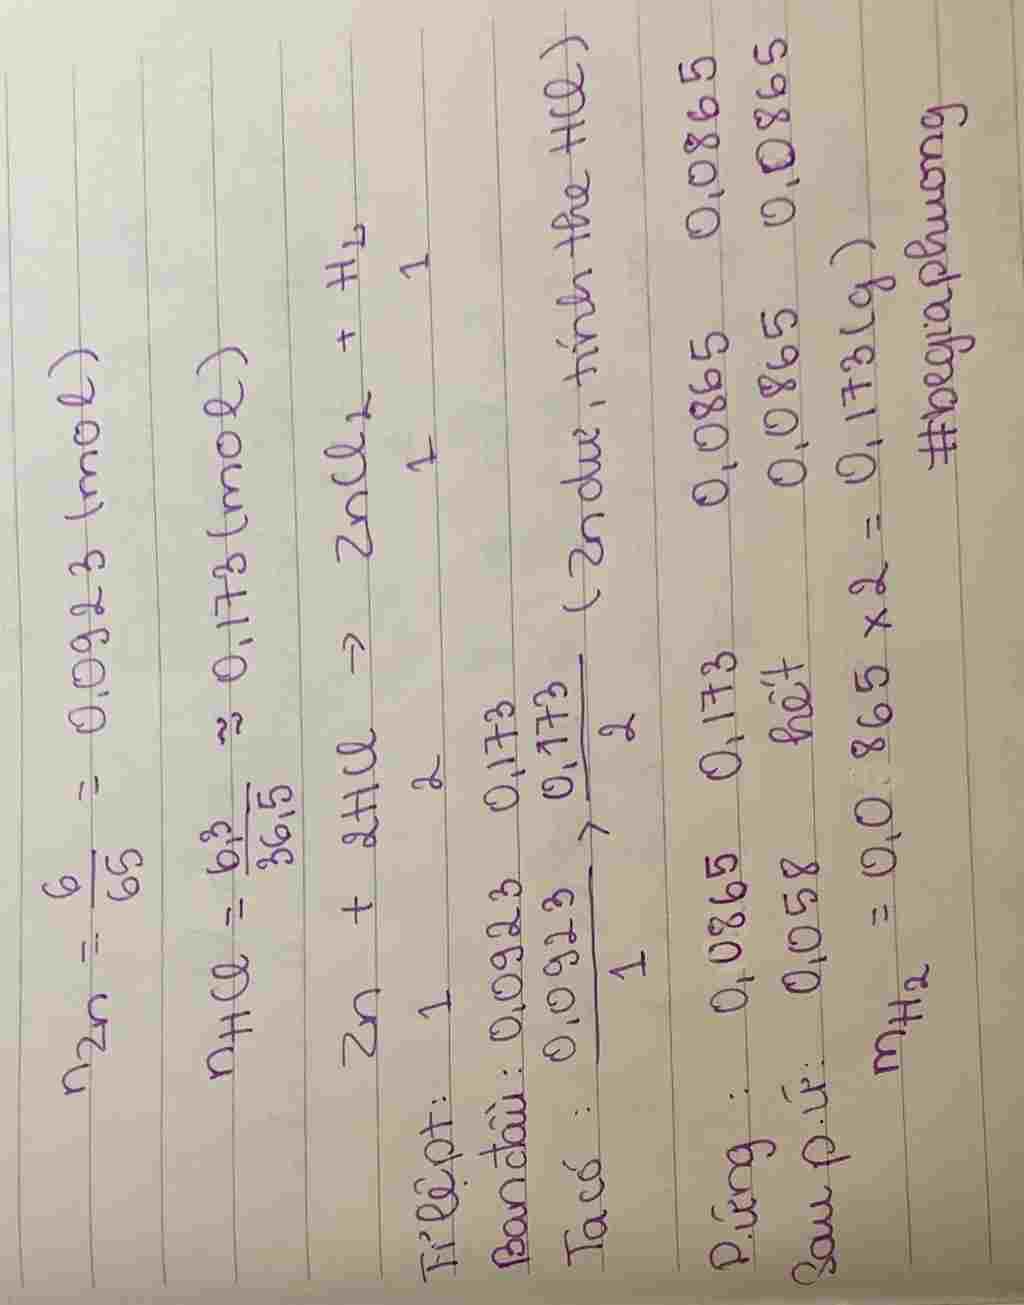 nZn = 6/65 = 0,0923 (mol)
nHCl = 6,3/36,5 ≈ 0,173 (mol)
Zn + 2HCl → ZnCl2 + H2
Tỉ lệ pt: 1 2 1 1
Ban đầu: 0,0923 0,173
Ta có: 0,0923/1 > 0,173/2 (Zn dư, tính the HCl)
P.ứng: 0,0865 0,173 0,0865 0,0865
Sau p.ứ: 0,058 hết 0,0865 0,0865
mH2 = 0,0865 x 2 = 0,173 (g)
#begiaphuong